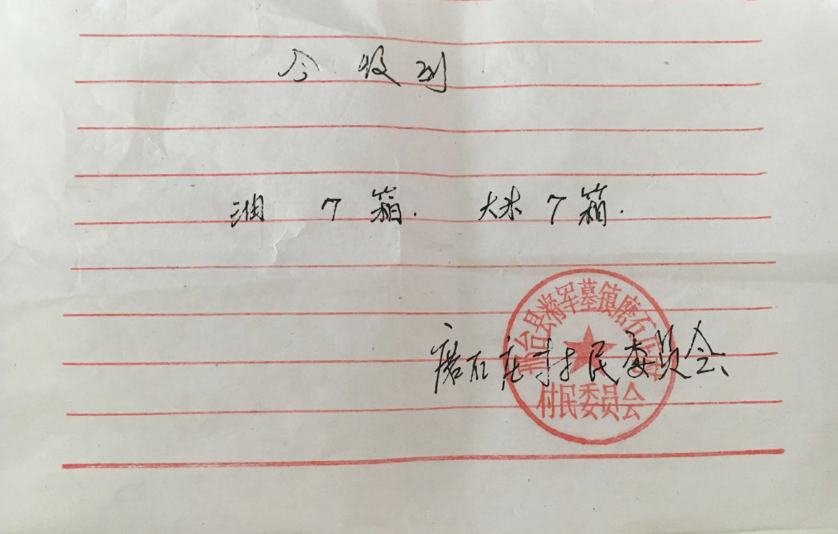 今收到
油 7箱. 大米 7箱.
磨石庄村民委员会
邢台县将军墓镇磨石
村民委员会